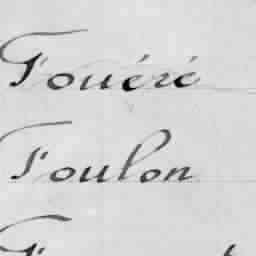 Fouéré
Foulon